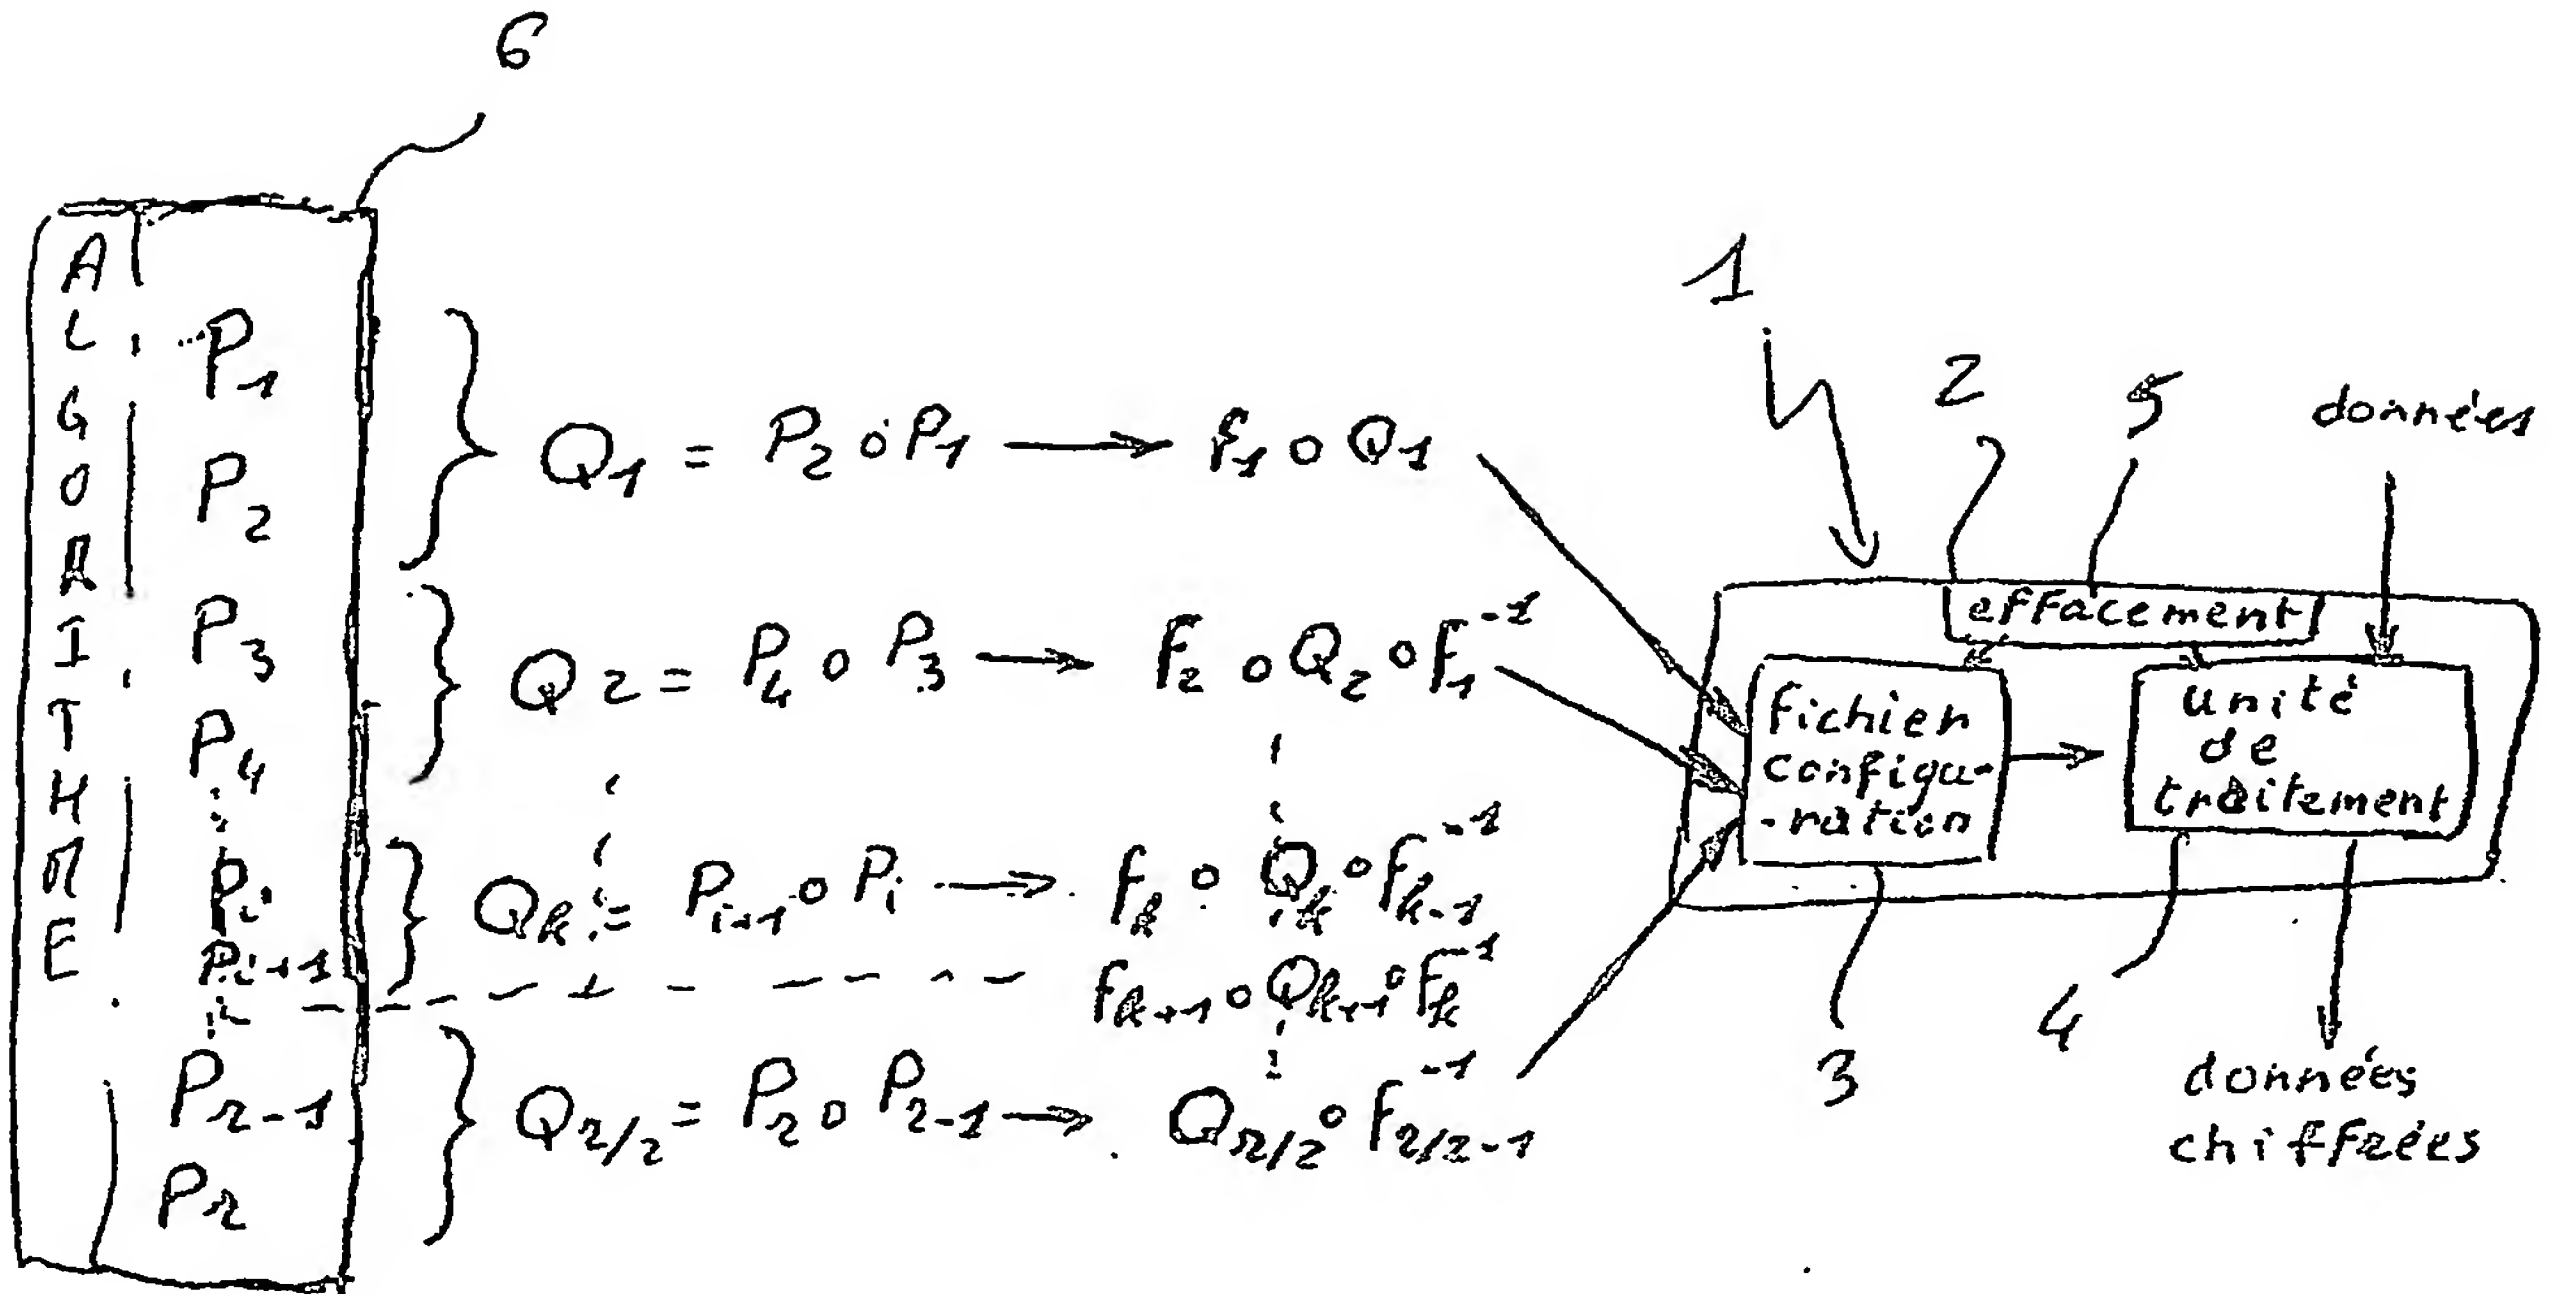 6
ALGORITHME
P₁
P₂
P₃
P₄
Pᵢ
Pᵢ₊₁
Pᵣ₋₁
Pᵣ
Q₁ = P₂ ∘ P₁ → f₁ ∘ Q₁
Q₂ = P₄ ∘ P₃ → f₂ ∘ Q₂ ∘ f₁⁻¹
Qₖ = Pᵢ₊₁ ∘ Pᵢ → fₖ ∘ Qₖ ∘ fₖ₋₁⁻¹
fₖ₊₁ ∘ Qₖ₊₁ ∘ fₖ⁻¹
Q_r/2 = Pᵣ ∘ Pᵣ₋₁ → Q_r/2 ∘ f_r/2-1⁻¹
1
2
5
données
effacement
fichier
configu-
-ration
unité
de
traitement
3
4
données
chiffrées